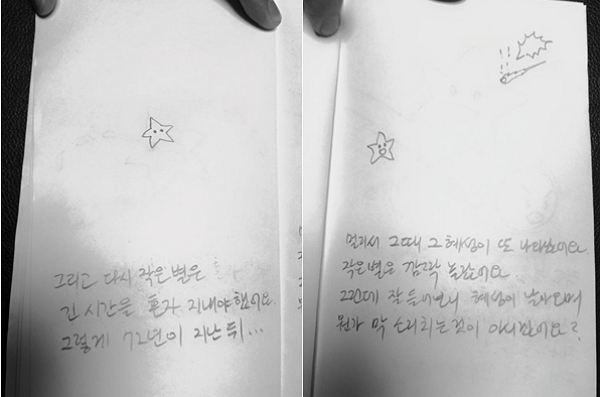 그리고 다시 작은 별은
긴 시간을 혼자 지내야했어요
그렇게 72년이 지난 뒤...
멀리서 그때 그 혜성이 또 나타났어요
작은별은 깜짝 놀랐어요
그런데 잘 들어보니 혜성이 날아오며
뭔가 막 소리치는것이 아니겠어요?